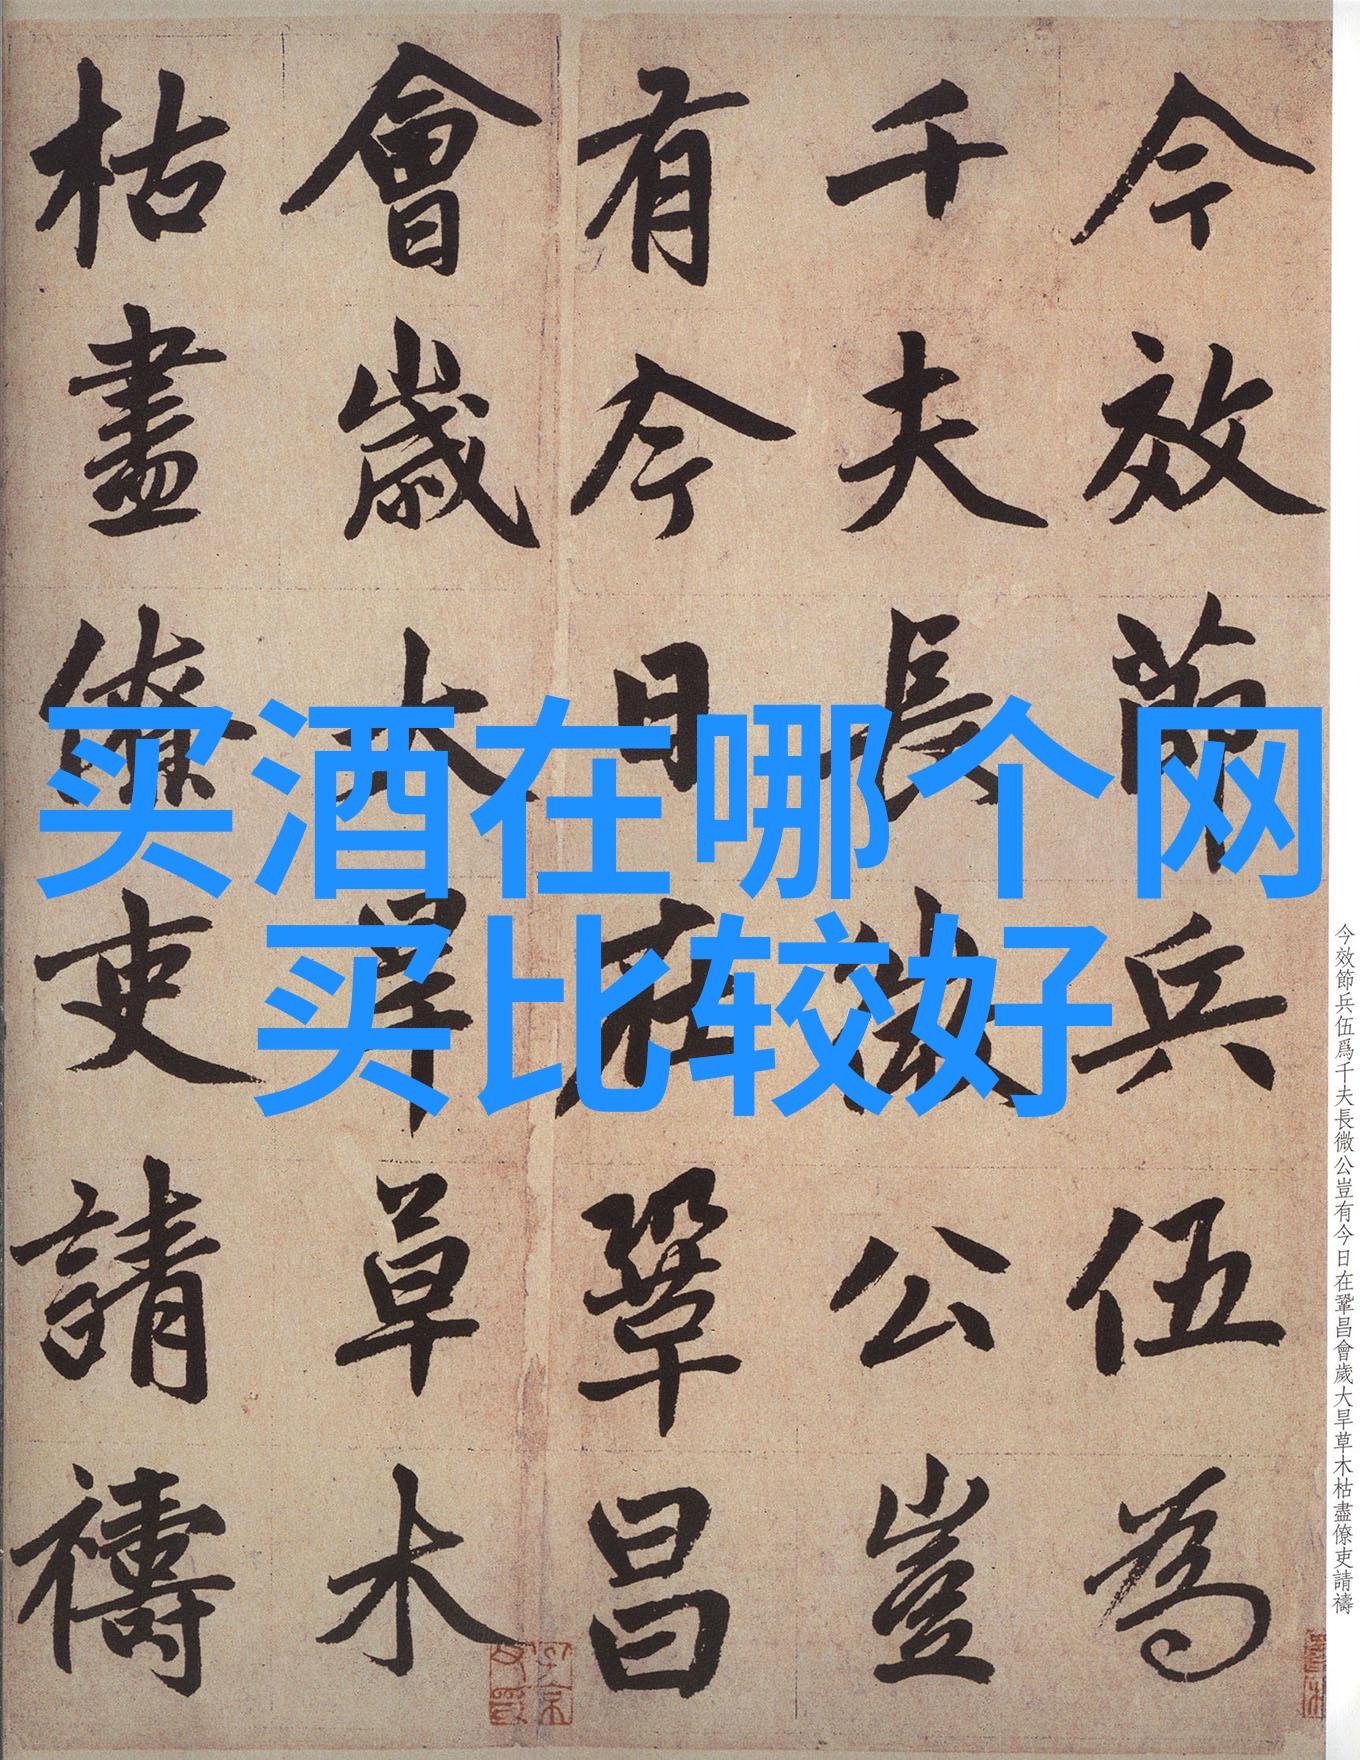 买酒在哪个网
买比较好
今效節兵伍為
千夫長微公豈
有今日在鞏昌
會歲大旱草木
枯盡僚吏請禱
今效節兵伍爲千夫長微公豈有今日在鞏昌會歲大旱草木枯盡僚吏請禱